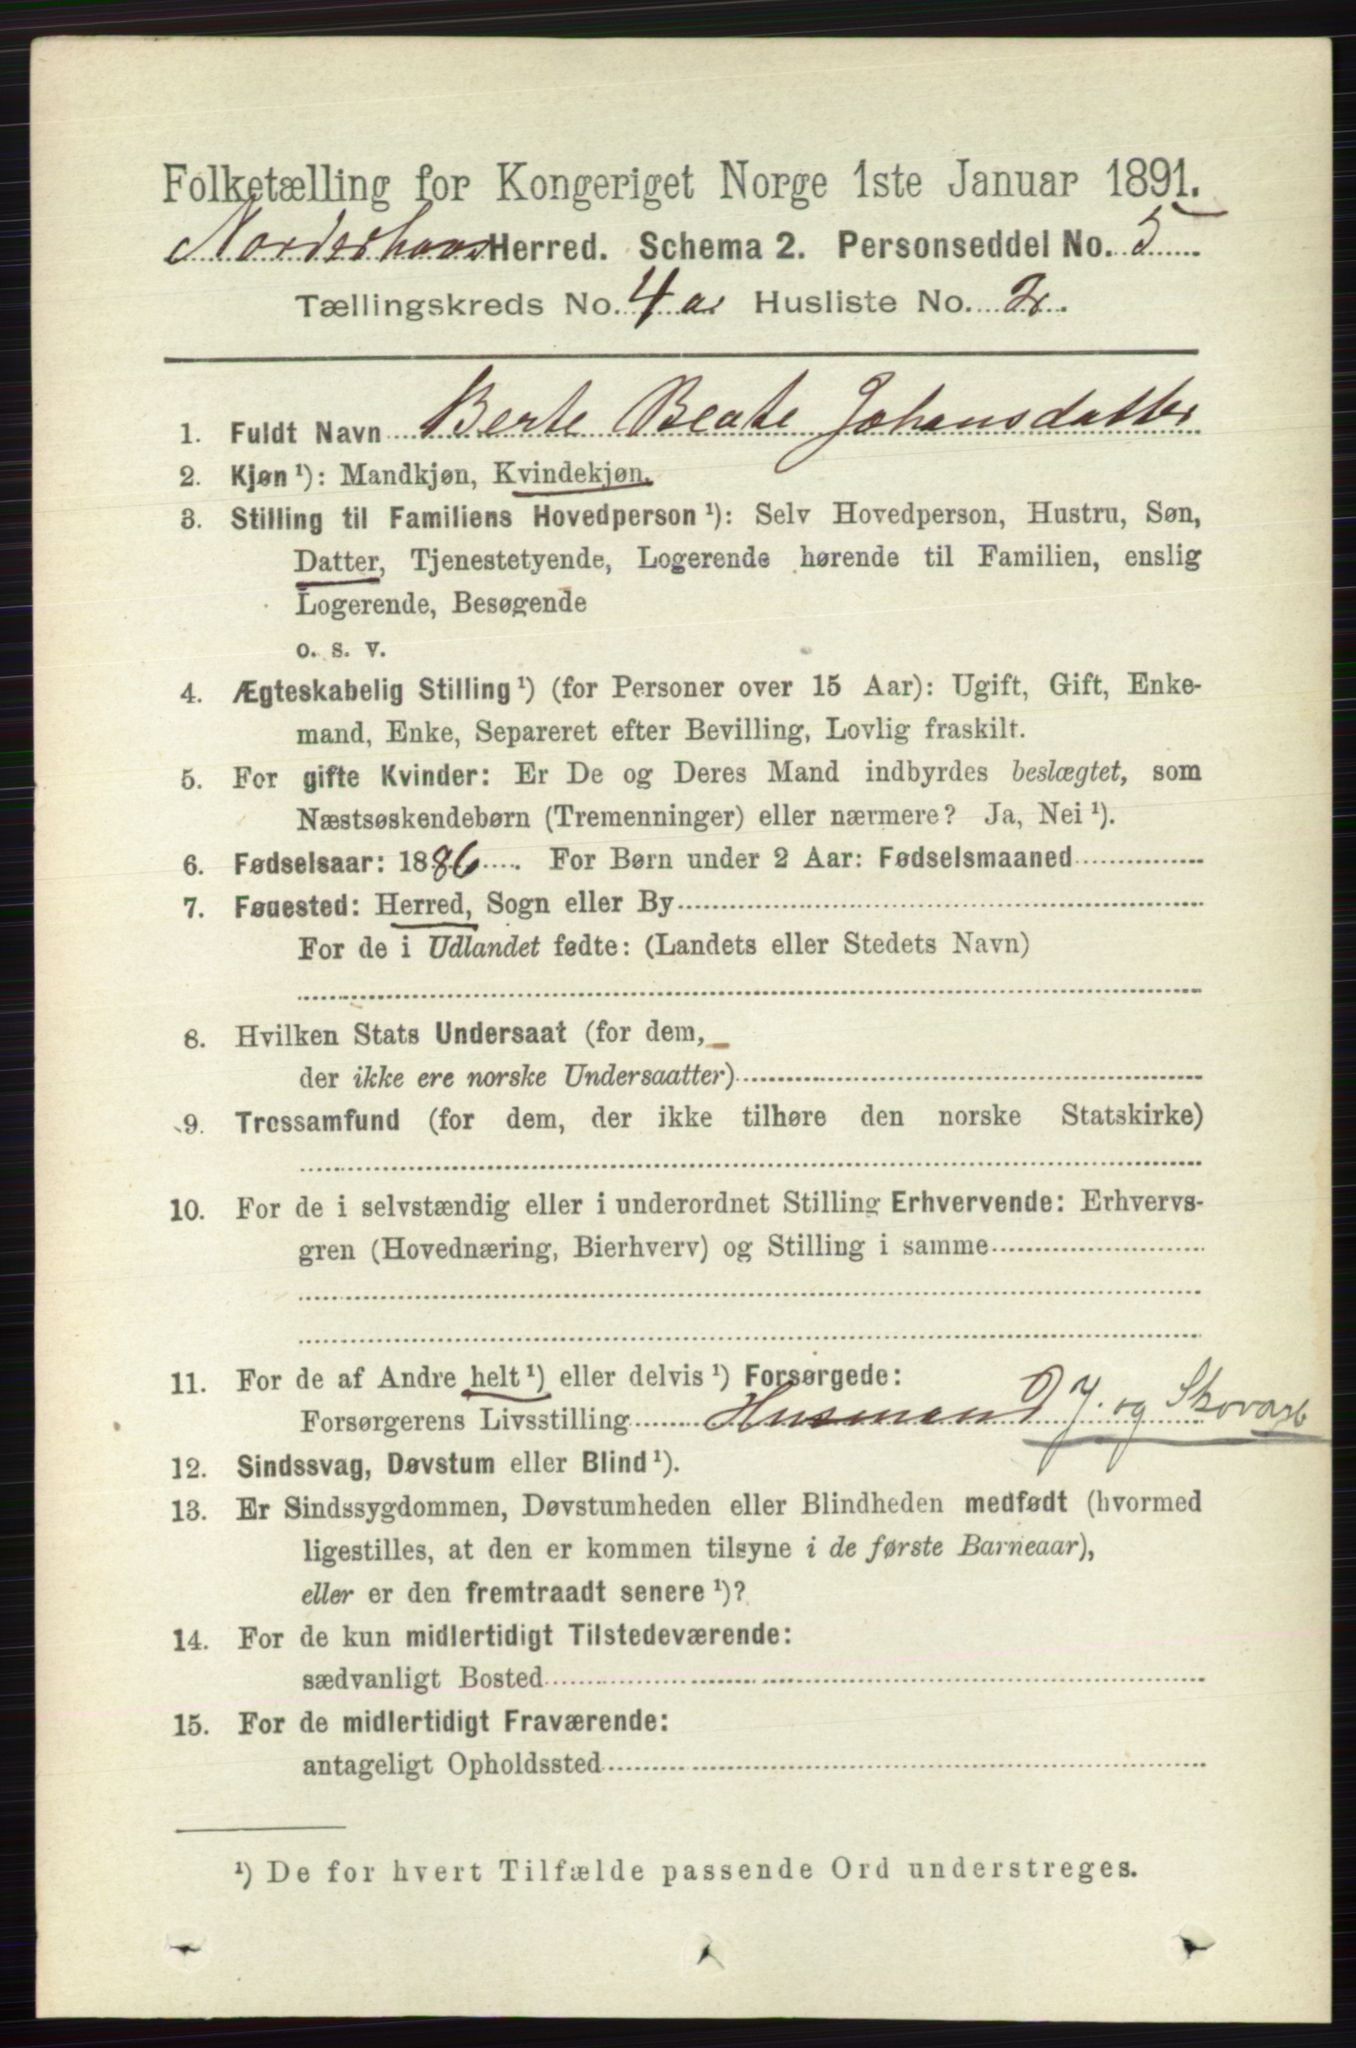 Folketælling for Kongeriget Norge 1ste Januar 1891.
Norderhovs Herred. Schema 2. Personseddel No. 5
Tællingskreds No. 4 a. Husliste No. 2.
1. Fuldt Navn Berte Beate Johansdatter
2. Kjøn ¹): Mandkjøn, Kvindekjøn.
3. Stilling til Familiens Hovedperson ¹): Selv Hovedperson, Hustru, Søn,
Datter, Tjenestetyende, Logerende hørende til Familien, enslig
Logerende, Besøgende
o. s. v.
4. Ægteskabelig Stilling ¹) (for Personer over 15 Aar): Ugift, Gift, Enke-
mand, Enke, Separeret efter Bevilling, Lovlig fraskilt.
5. For gifte Kvinder: Er De og Deres Mand indbyrdes beslægtet, som
Næstsøskendebørn (Tremenninger) eller nærmere? Ja, Nei ¹).
6. Fødselsaar: 1886. For Børn under 2 Aar: Fødselsmaaned
7. Føuested: Herred, Sogn eller By
For de i Udlandet fødte: (Landets eller Stedets Navn)
8. Hvilken Stats Undersaat (for dem,
der ikke ere norske Undersaatter)
9. Trossamfund (for dem, der ikke tilhøre den norske Statskirke)
10. For de i selvstændig eller i underordnet Stilling Erhvervende: Erhvervs-
gren (Hovednæring, Bierhverv) og Stilling i samme
11. For de af Andre helt ¹) eller delvis ¹) Forsørgede:
Forsørgerens Livsstilling Husmand J. og Skovarb
12. Sindssvag, Døvstum eller Blind ¹).
13. Er Sindssygdommen, Døvstumheden eller Blindheden medfødt (hvormed
ligestilles, at den er kommen tilsyne i de første Barneaar),
eller er den fremtraadt senere ¹)?
14. For de kun midlertidigt Tilstedeværende:
sædvanligt Bosted
15. For de midlertidigt Fraværende:
antageligt Opholdssted
¹) De for hvert Tilfælde passende Ord understreges.